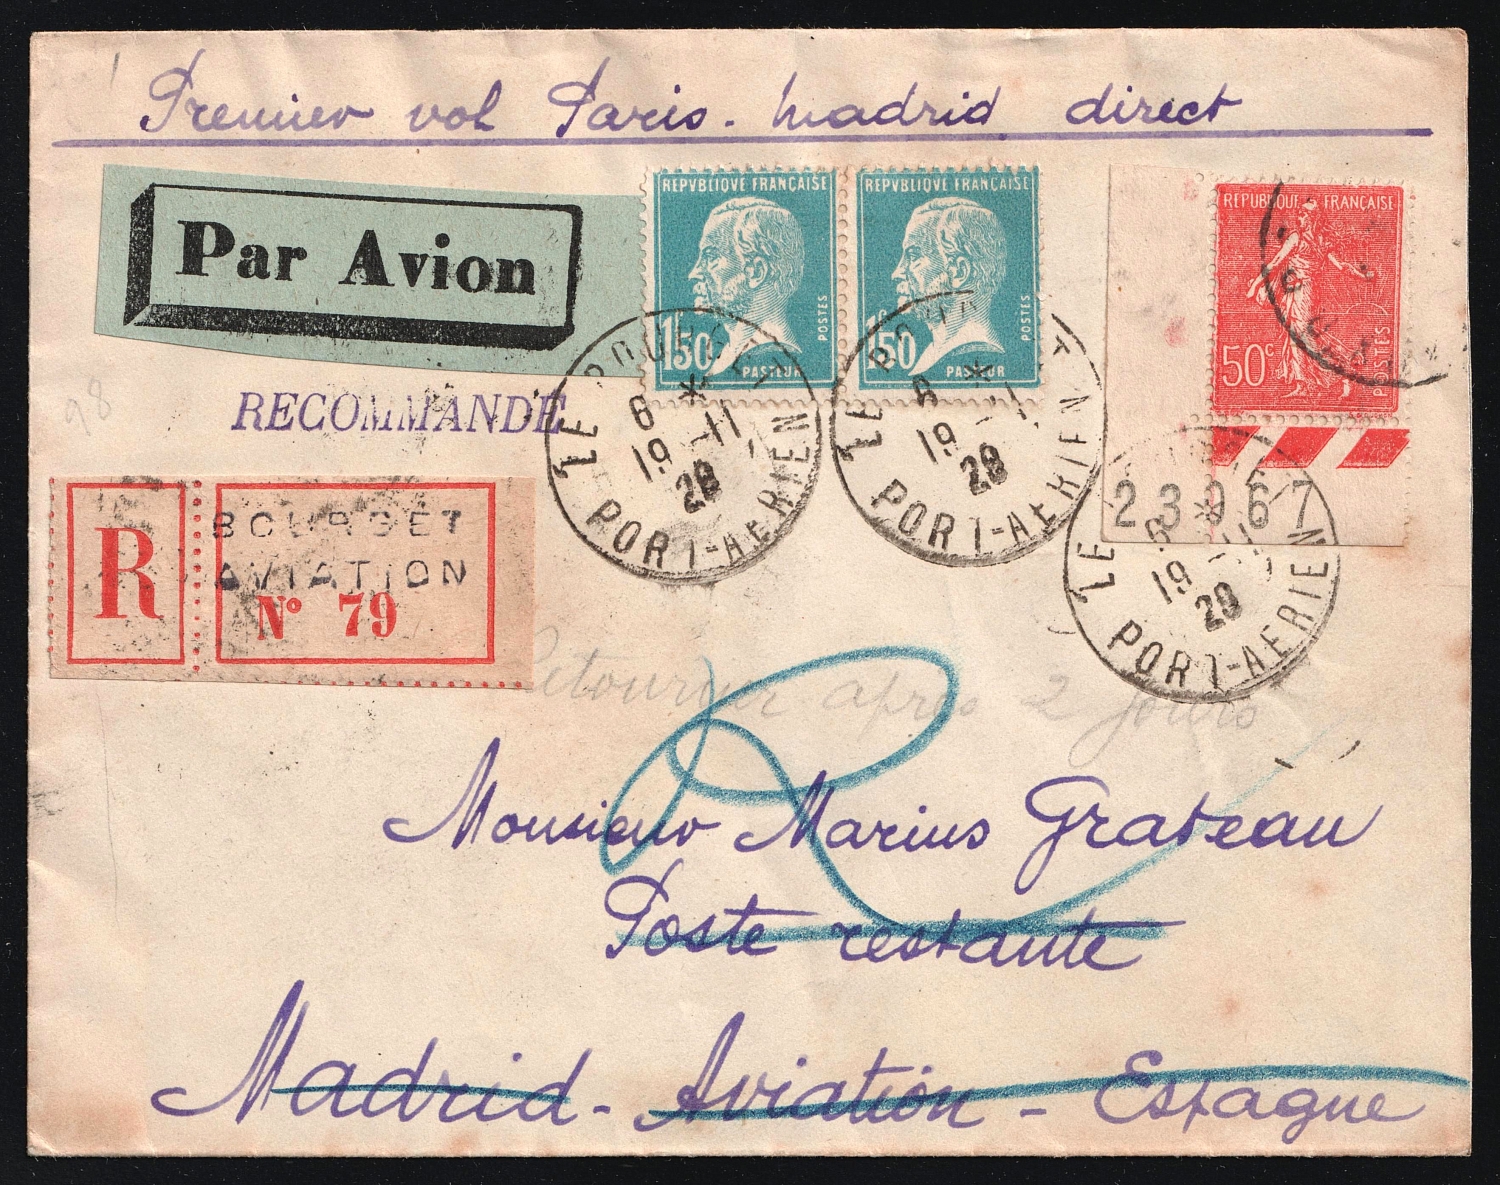 Premier vol Paris - Madrid direct
Par Avion
REPVBLIQVE FRANÇAISE
1F50
POSTES
PASTEUR
REPVBLIQVE FRANÇAISE
1F50
POSTES
PASTEUR
REPUBLIQUE FRANÇAISE
50c
POSTES
23967
RECOMMANDE
LE BOURGET
6 *
19 - 11
28
PORT-AERIEN
LE BOURGET
6 *
19 - 11
28
PORT-AERIEN
LE BOURGET
6 *
19 - 11
28
PORT-AERIEN
98
R
BOURGET
AVIATION
N° 79
Retourner après 2 jours
R
Monsieur Marius Grateau
Poste restante
Madrid - Aviation - Espagne